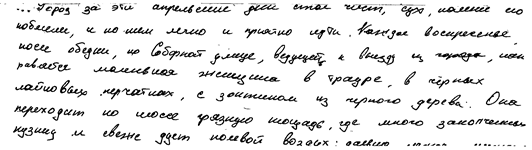 ... Город за эти апрельские дни стал чист, сух, камни его
побелели, и по ним легко и приятно идти. Каждое воскресенье,
после обедни, по Соборной улице, ведущей к выезду из города, нап
равляется маленькая женщина в трауре, в чёрных
лайковых перчатках, с зонтиком из черного дерева. Она
переходит по шоссе грязную площадь, где много закопченных
кузниц и свежо дует полевой воздух;